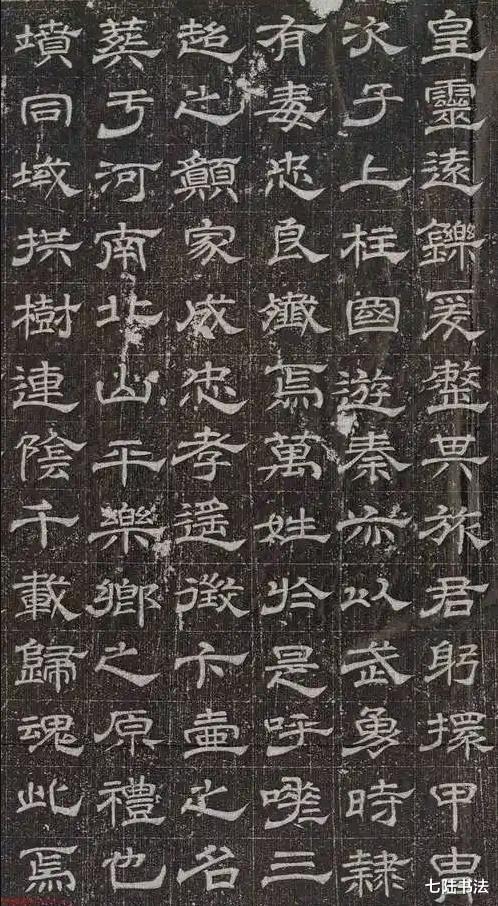 皇靈遠鑠爰整其旅君躬擐甲胄
次子上柱國遊秦亦以武勇時隸
有毒忠良殲焉萬姓於是呼嗟三
超之顛家成忠孝遥徵卞壷之名
葬于河南北山平樂鄉之原禮也
墳同域拱樹連陰千載歸魂此焉
七陆书法